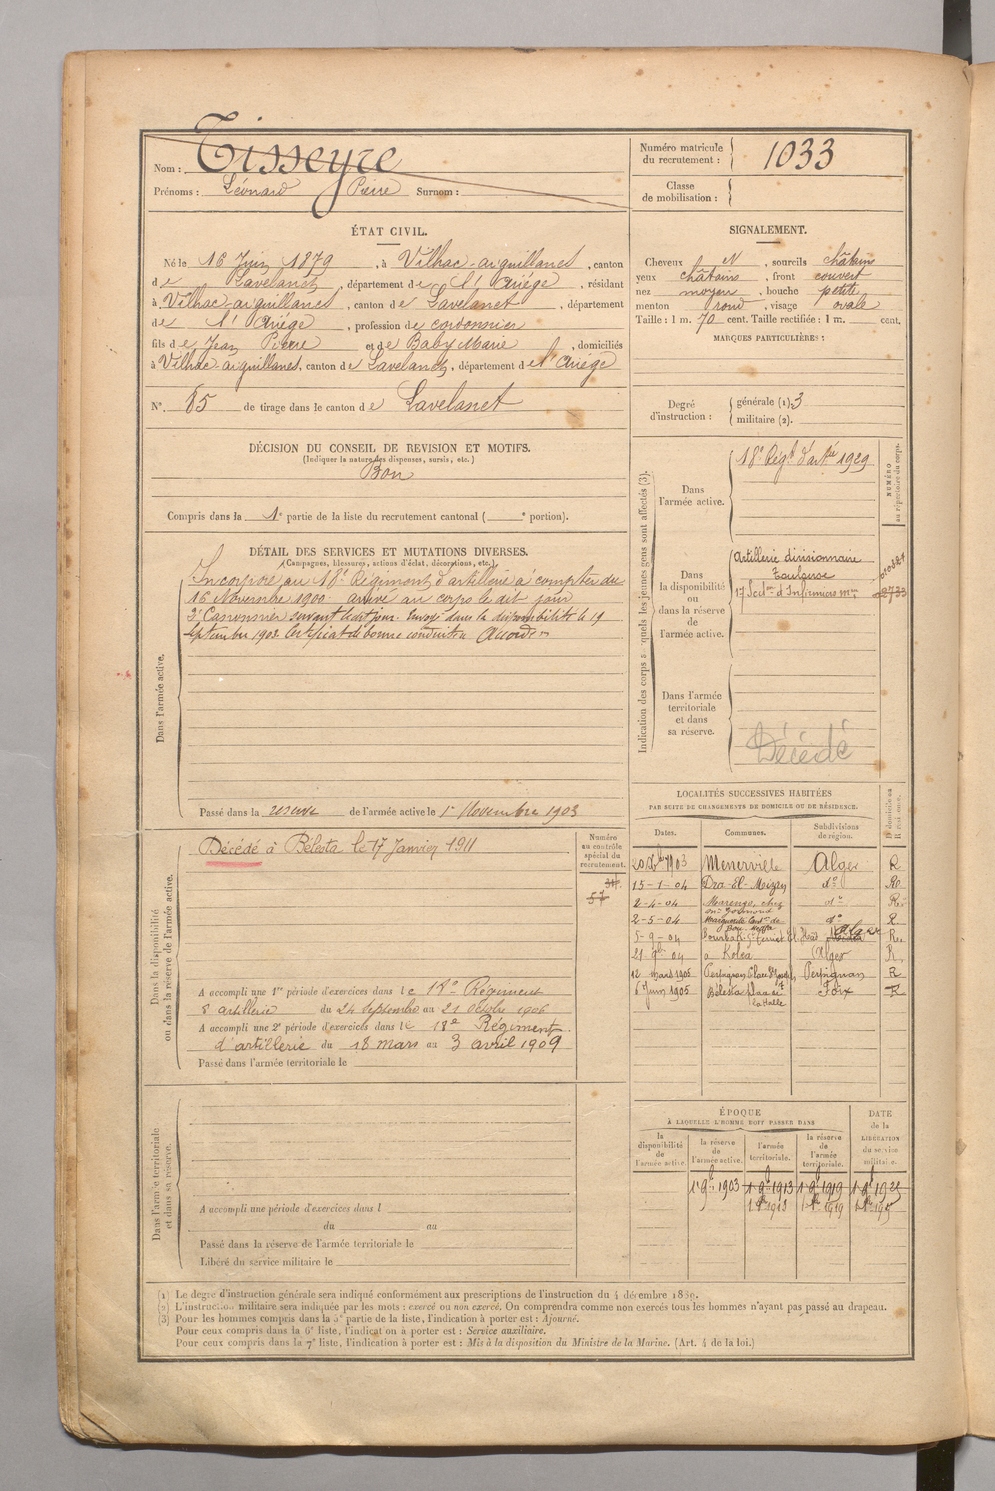 Nom : Tisseyre
Prénoms : Léonard Pierre Surnom :
Numéro matricule du recrutement : 1033
Classe de mobilisation :
ÉTAT CIVIL.
Né le 16 Juin 1879, à Vilhac-aiguillanes, canton
de Lavelanet, département de l'Ariège, résidant
à Vilhac-aiguillanes, canton de Lavelanet, département
de l'Ariège, profession de cordonnier
fils de Jean Pierre et de Baby Marie, domiciliés
à Vilhac-aiguillanes, canton de Lavelanet, département de l'Ariège
N°. 85 de tirage dans le canton de Lavelanet
SIGNALEMENT.
Cheveux N, sourcils châtains
yeux châtains, front couvert
nez moyen, bouche petite
menton rond, visage ovale
Taille : 1 m. 70 cent. Taille rectifiée : 1 m. cent.
MARQUES PARTICULIÈRES :
Degré d'instruction :
générale (1). 3
militaire (2).
DÉCISION DU CONSEIL DE REVISION ET MOTIFS.
(Indiquer la nature des dispenses, sursis, etc.)
Bon
Compris dans la 1e partie de la liste du recrutement cantonal ( e portion).
DÉTAIL DES SERVICES ET MUTATIONS DIVERSES.
(Campagnes, blessures, actions d'éclat, décorations, etc.)
Dans l'armée active.
Incorporé au 18e Régiment d'artillerie à compter du
16 Novembre 1900. arrivé au corps le dit jour
2e Canonnier servant le dit jour. Envoyé dans la disponibilité le 19
septembre 1902 Certificat de bonne conduite Accordé
Passé dans la réserve de l'armée active le 1er Novembre 1903
Indication des corps auxquels les jeunes gens sont affectés (3).
NUMÉRO au répertoire du corps.
Dans l'armée active.
18e Régt d'artie 1929
Dans la disponibilité ou dans la réserve de l'armée active.
Artillerie divisionnaire
Toulouse
17 Section d'Infirmiers mres
Dans l'armée territoriale et dans sa réserve.
Décédé
Dans la disponibilité ou dans la réserve de l'armée active.
Décédé à Bélesta le 17 Janvier 1911
Numéro au contrôle spécial du recrutement.
57
A accompli une 1re période d'exercices dans le 18e Régiment
d'artillerie du 24 septembre au 21 octobre 1906
A accompli une 2e période d'exercices dans le 18e Régiment
d'artillerie du 18 mars au 3 avril 1909
Passé dans l'armée territoriale le
LOCALITÉS SUCCESSIVES HABITÉES
PAR SUITE DE CHANGEMENTS DE DOMICILE OU DE RÉSIDENCE.
Dates. Communes. Subdivisions de région.
1903 Menerville Alger R
15-1-04 Dra-El-Mizan do R
2-4-04 Marengo, chez do R
2-5-04 do R
5-9-04 Alger R
21 9bre 04 à Koléa Alger R
12 mars 1905 Perpignan Perpignan R
6 Juin 1905 Bélesta Foix R
la Halle
ÉPOQUE
À LAQUELLE L'HOMME DOIT PASSER DANS
DATE de la LIBÉRATION du service militaire.
la disponibilité de l'armée active.
la réserve de l'armée active.
l'armée territoriale.
la réserve de l'armée territoriale.
1er 9bre 1903 1er 9bre 1913 1er 9bre 1919
Dans l'armée territoriale et dans sa réserve.
A accompli une période d'exercices dans l
du au
Passé dans la réserve de l'armée territoriale le
Libéré du service militaire le
(1) Le degré d'instruction générale sera indiqué conformément aux prescriptions de l'instruction du 4 décembre 1889.
(2) L'instruction militaire sera indiquée par les mots : exercé ou non exercé. On comprendra comme non exercés tous les hommes n'ayant pas passé au drapeau.
(3) Pour les hommes compris dans la 5e partie de la liste, l'indication à porter est : Ajourné.
Pour ceux compris dans la 6e liste, l'indication à porter est : Service auxiliaire.
Pour ceux compris dans la 7e liste, l'indication à porter est : Mis à la disposition du Ministre de la Marine. (Art. 4 de la loi.)